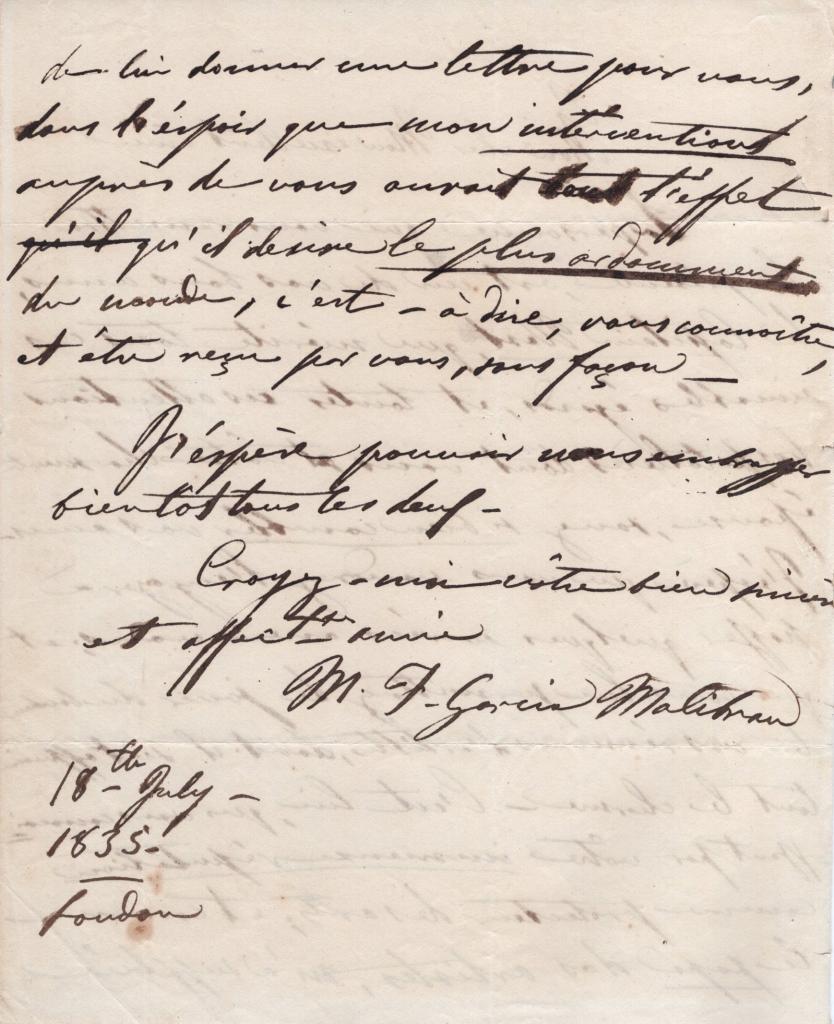 de lui donner une lettre pour vous,
dans l'éspoir que mon interventions
auprès de vous aurait tout l'effet
qu'il qu'il desire le plus ardamment
du monde, c'est-à dire, vous connoître,
et être reçu par vous, sans façon —
J'éspère pouvoir vous embrasser
bientôt tous les deux —
Croyez-moi vôtre bien sincère
et affecte amie
M. F. Garcia Malibran
18th July —
1835.
London